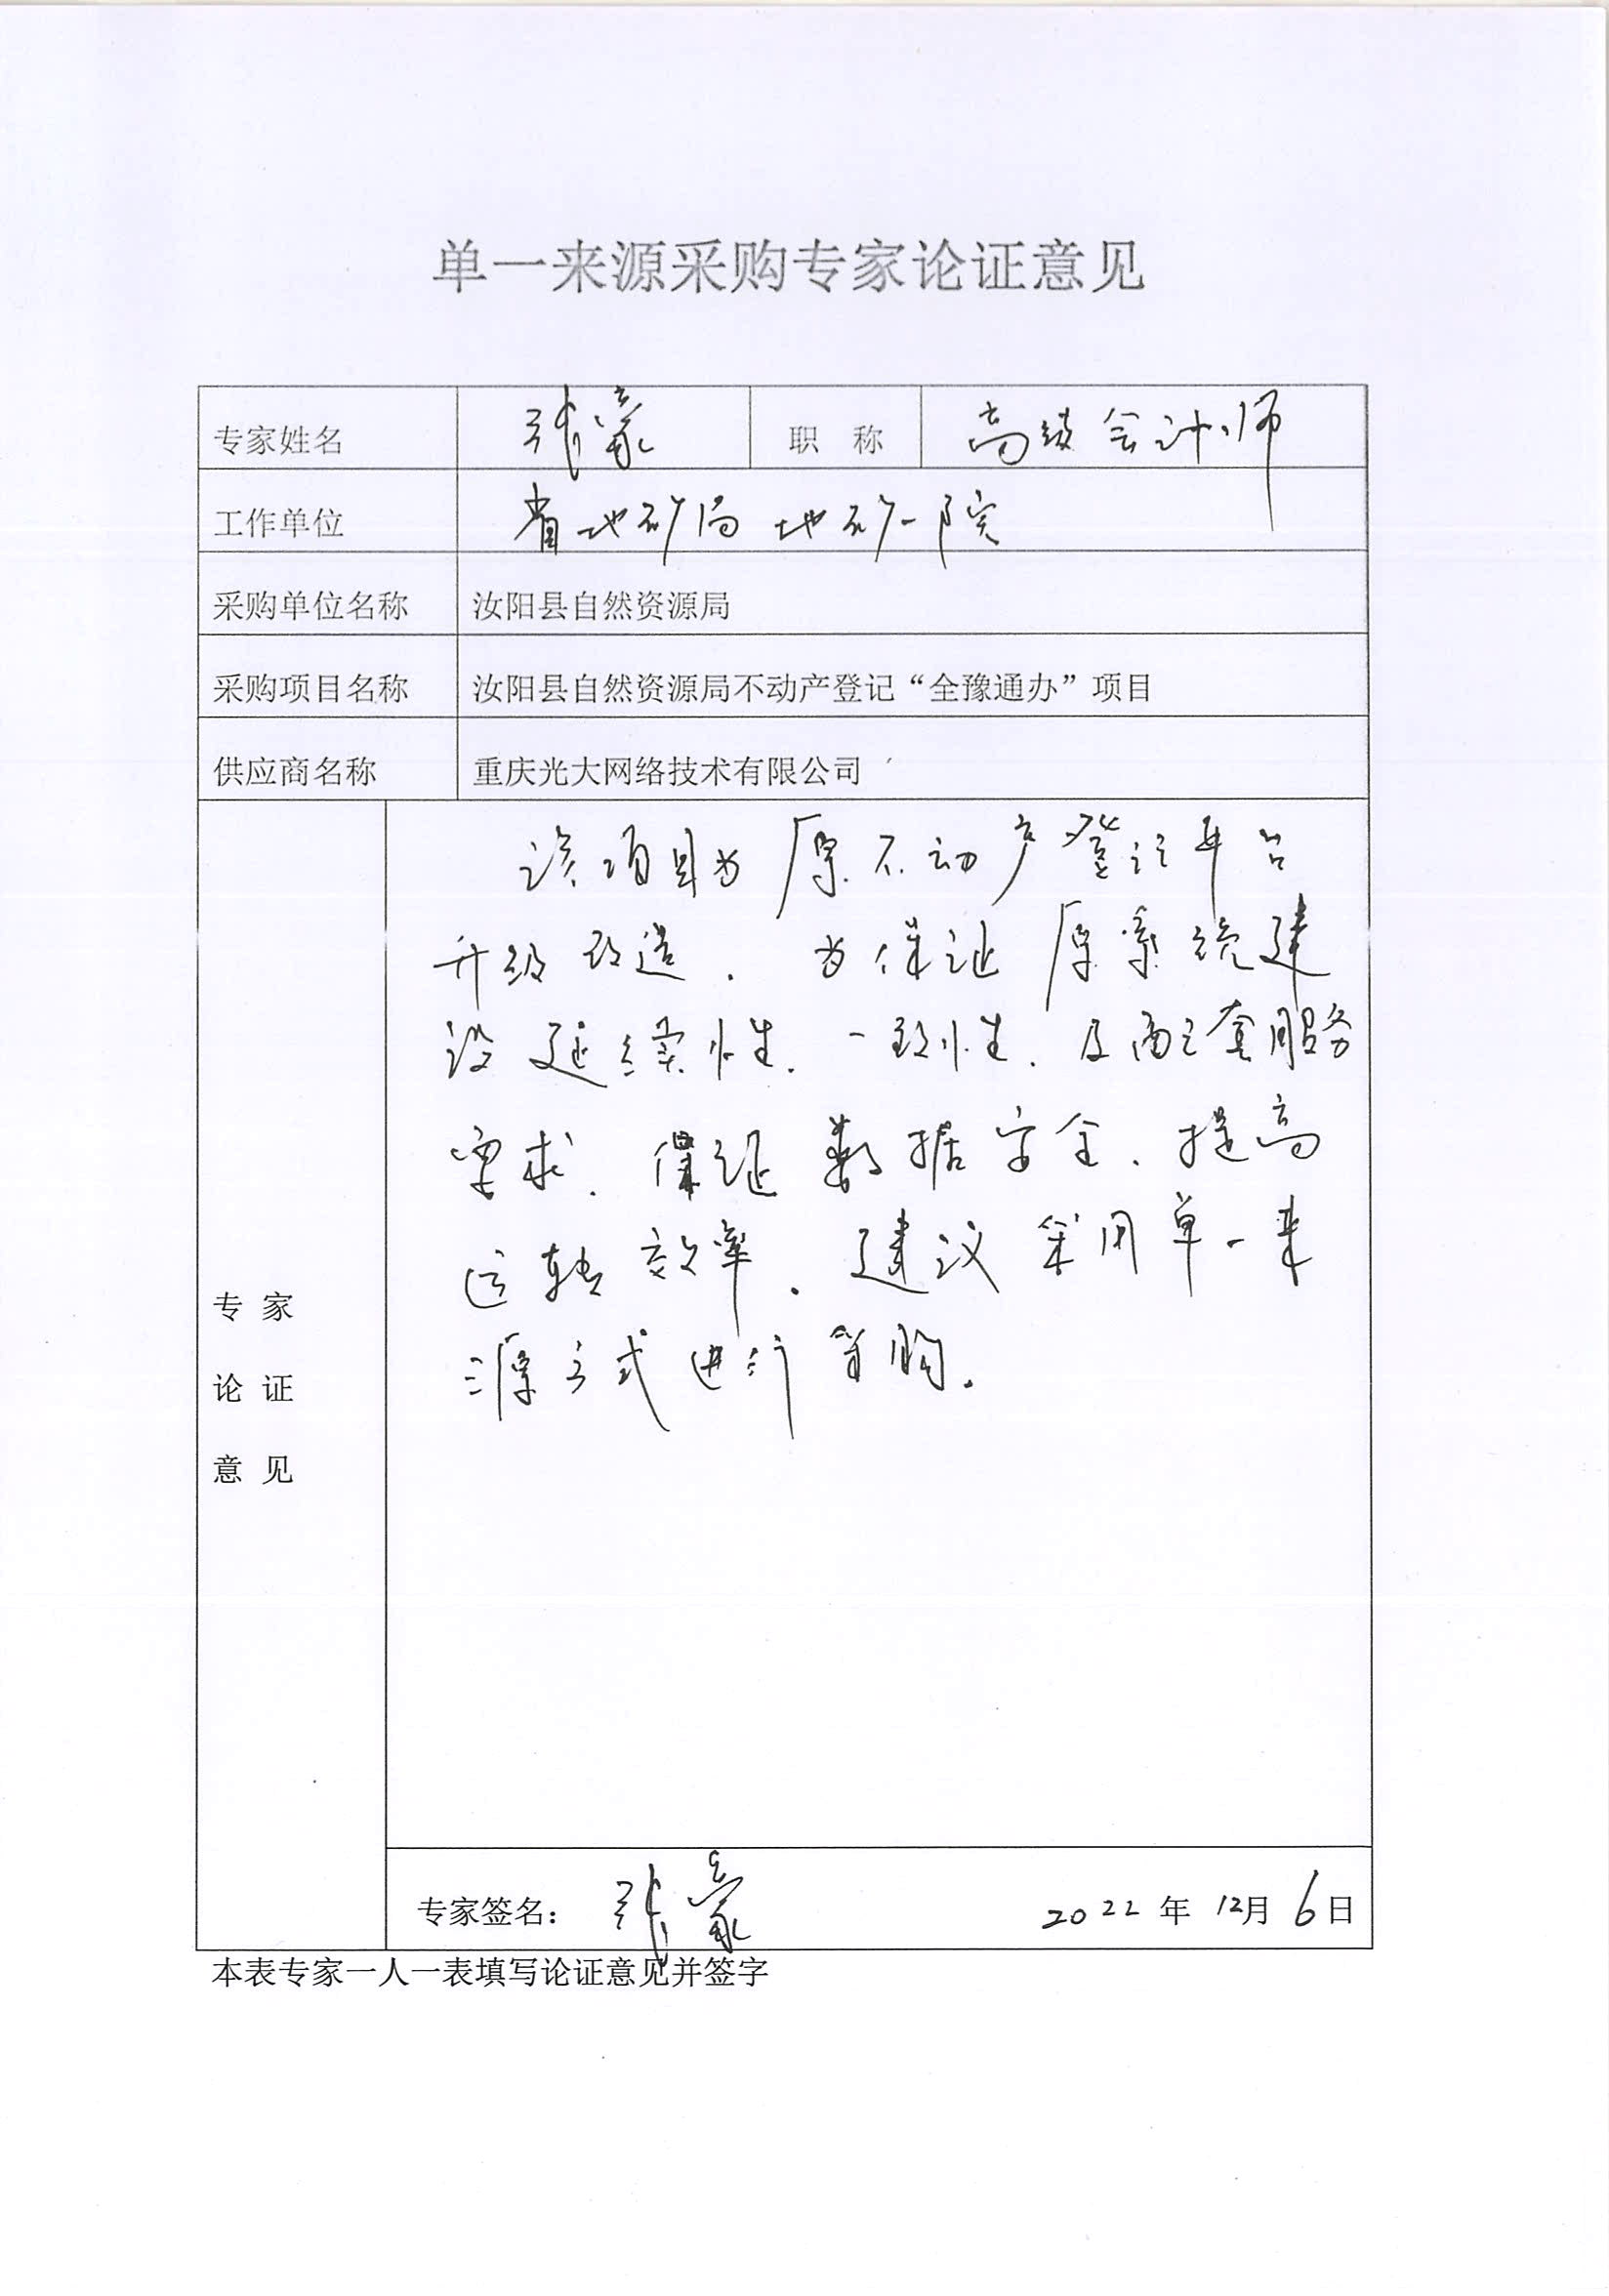 单一来源采购专家论证意见
专家姓名 张豪 职 称 高级会计师
工作单位 省地矿局 地矿一院
采购单位名称 汝阳县自然资源局
采购项目名称 汝阳县自然资源局不动产登记“全豫通办”项目
供应商名称 重庆光大网络技术有限公司
该项目为原不动产登记平台
升级改造.为保证原系统建
设延续性.一致性.及配套服务
要求.保证数据安全.提高
运转效率.建议采用单一来
源方式进行采购.
专 家
论 证
意 见
专家签名: 张豪 2022年12月6日
本表专家一人一表填写论证意见并签字